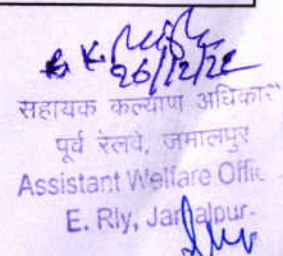 26/12/22
सहायक कल्याण अधिकारी
पूर्व रेलवे, जमालपुर
Assistant Welfare Offic
E. Rly, Jamalpur.